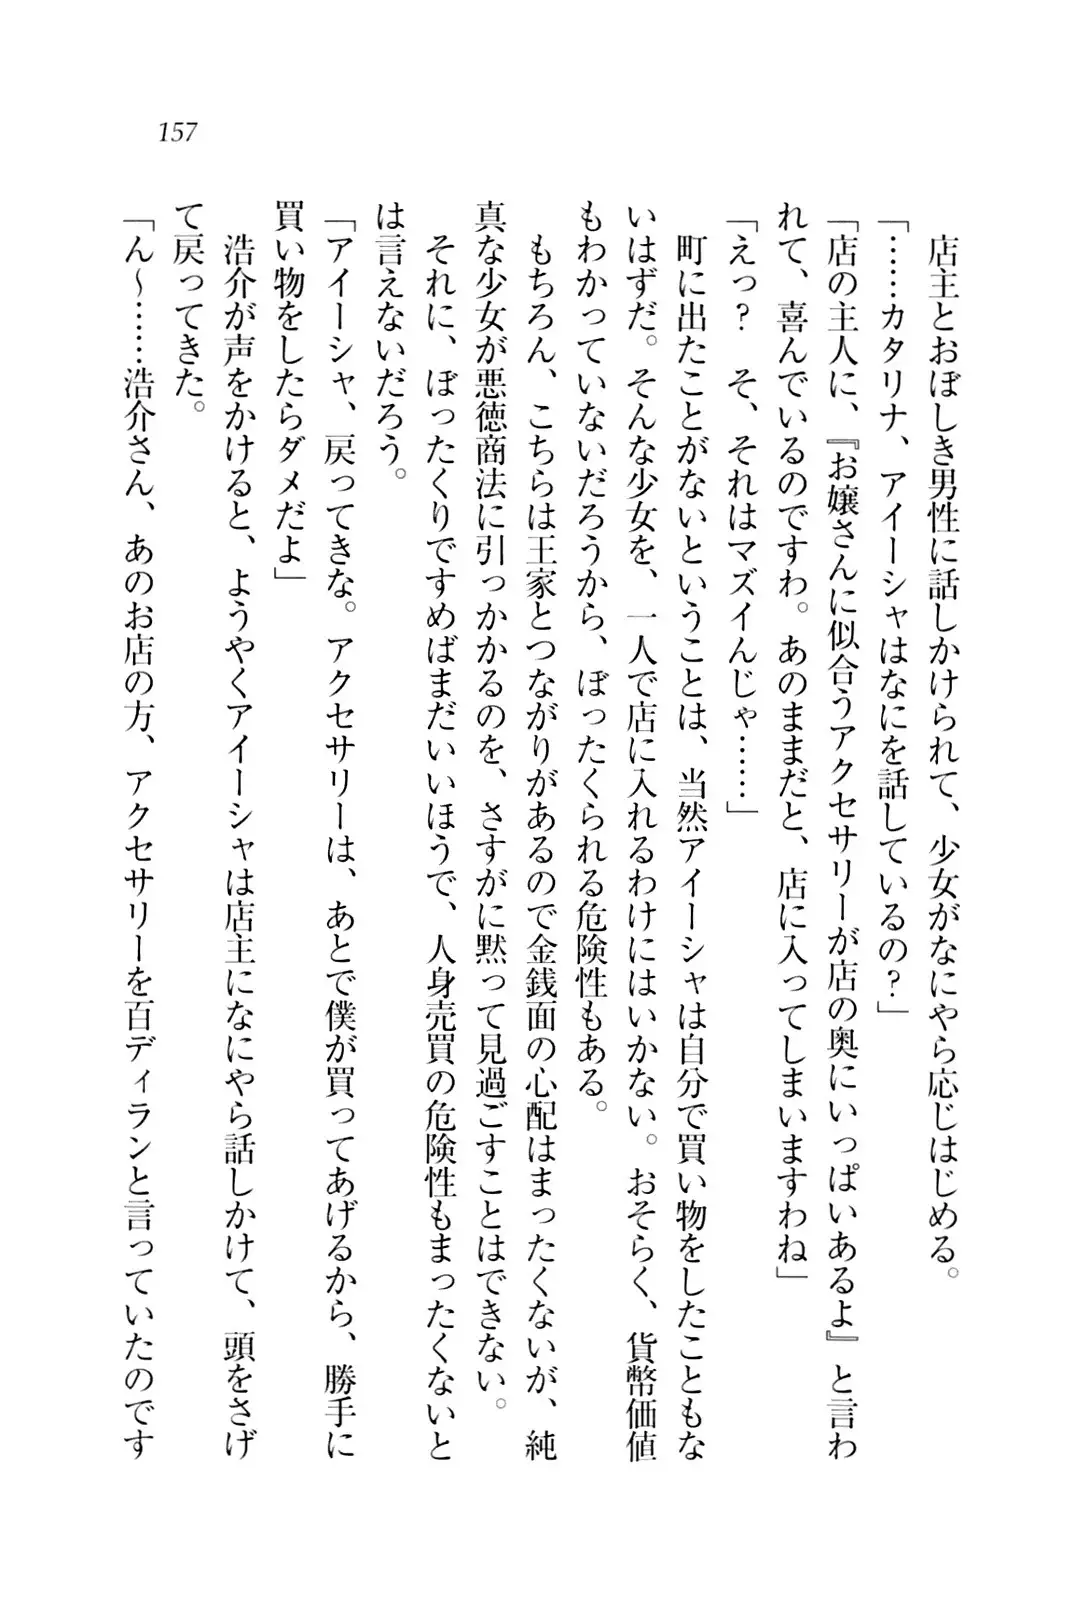 157
　店主とおぼしき男性に話しかけられて、少女がなにやら応じはじめる。
「……カタリナ、アイーシャはなにを話しているの？」
「店の主人に、『お嬢さんに似合うアクセサリーが店の奥にいっぱいあるよ』と言わ
れて、喜んでいるのですわ。あのままだと、店に入ってしまいますわね」
「えっ？　そ、それはマズイんじゃ……」
　町に出たことがないということは、当然アイーシャは自分で買い物をしたこともな
いはずだ。そんな少女を、一人で店に入れるわけにはいかない。おそらく、貨幣価値
もわかっていないだろうから、ぼったくられる危険性もある。
　もちろん、こちらは王家とつながりがあるので金銭面の心配はまったくないが、純
真な少女が悪徳商法に引っかかるのを、さすがに黙って見過ごすことはできない。
　それに、ぼったくりですめばまだいいほうで、人身売買の危険性もまったくないと
は言えないだろう。
「アイーシャ、戻ってきな。アクセサリーは、あとで僕が買ってあげるから、勝手に
買い物をしたらダメだよ」
　浩介が声をかけると、ようやくアイーシャは店主になにやら話しかけて、頭をさげ
て戻ってきた。
「ん～……浩介さん、あのお店の方、アクセサリーを百ディランと言っていたのです